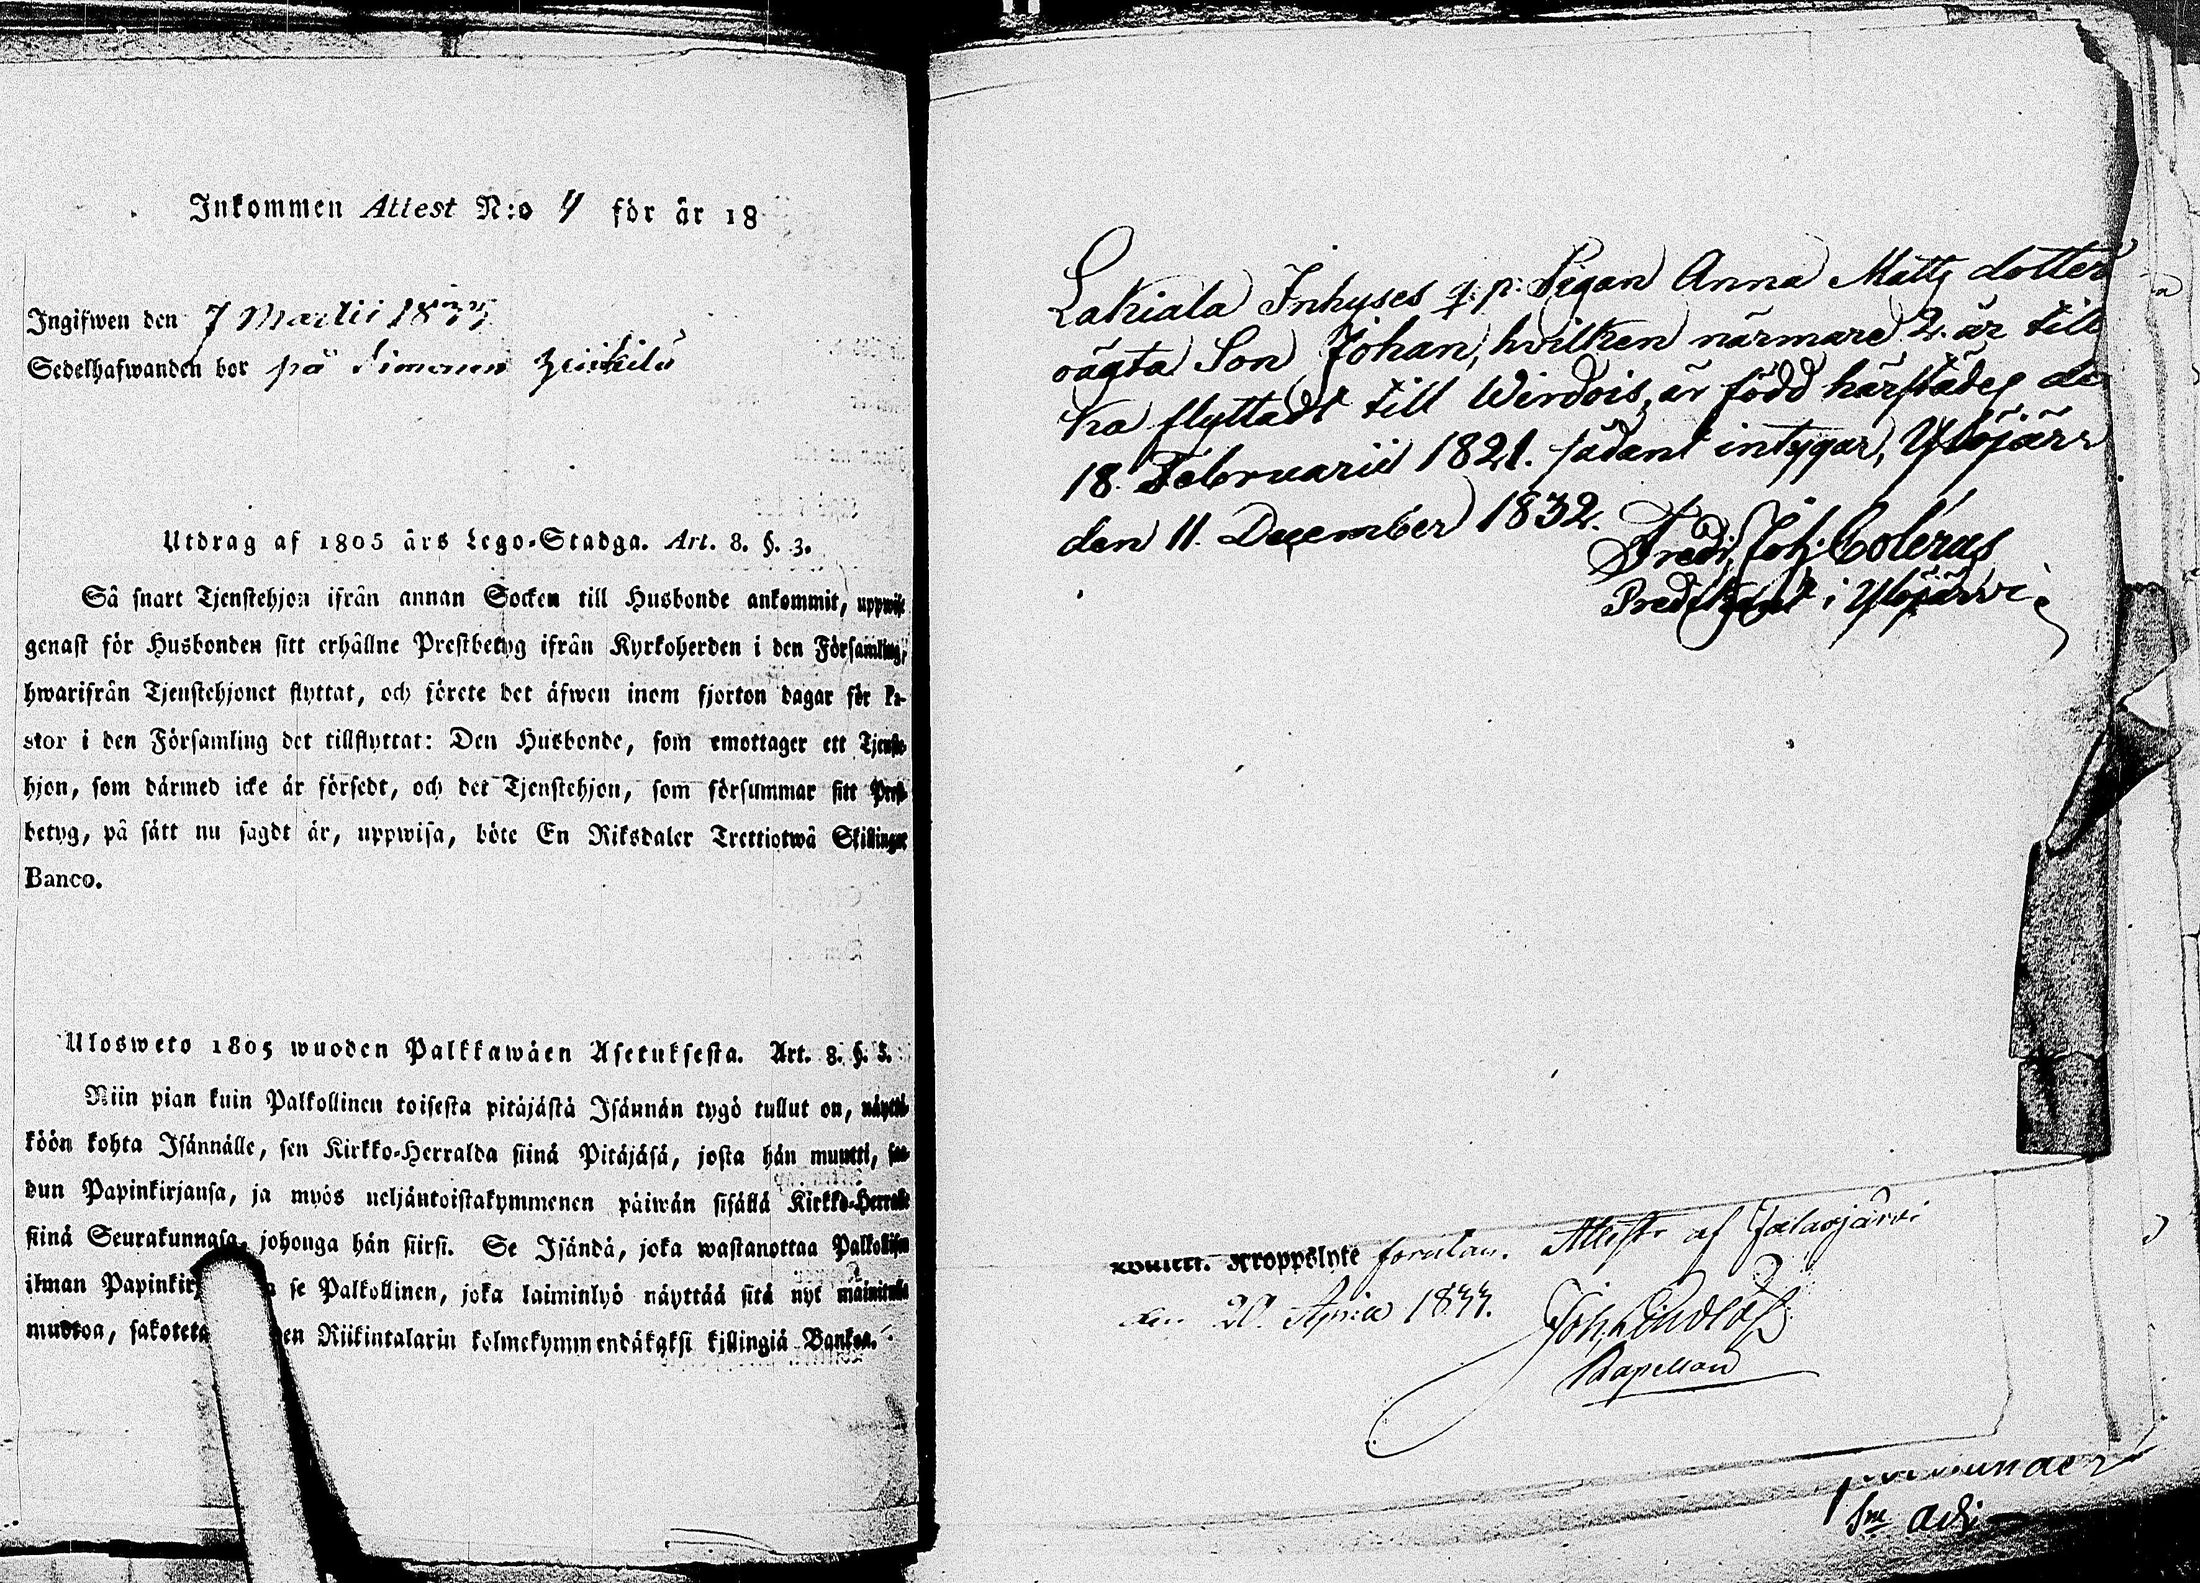 Inkommen Attest N:o 4 för år 18
Ingifwen den 7 Martii 1833
Sedelhafwanden bor på Simoun
Utdrag af 1805 års Lego-Stadga. Art. 8. §. 3.
Så snart Tjenstehjon ifrån annan Socken till Husbonde ankommit, uppwise
genast för Husbonden sitt erhållne Prestbetyg ifrån Kyrkoherden i den Församling,
hwarifrån Tjenstehjonet flyttat, och förete det äfwen inom fjorton dagar för Pa-
stor i den Församling det tillflyttat: Den Husbonde, som emottager ett Tjenste-
hjon, som därmed icke är försedt, och det Tjenstehjon, som försummar sitt Prest-
betyg, på sätt nu sagdt är, uppwisa, böte En Riksdaler Trettiotwå Skillingar
Banco.
Ulosweto 1805 wuoden Palkkawäen Asetuksesta. Art. 8. §. 3.
Niin pian kuin Palkollinen toisesta pitäjästä Isännän tygö tullut on, näyttä-
köön kohta Isännälle, sen Kirkko-Herralda siinä Pitäjäsä, josta hän muutti, saa-
dun Papinkirjansa, ja myös neljäntoistakymmenen päiwän sisällä Kirkko-Herralle
siinä Seurakunnasa, johonga hän siirsi. Se Isändä, joka wastanottaa Palkollisen
ilman Papinkir se Palkollinen, joka laiminlyö näyttää sitä nyt mainitulla
muotoa, sakoteta en Riikintalarin kolmekymmendäkaksi killingiä Bankoa.
Lakiala Inhyses q. p. Pigan Anna Matts dotter
oägta Son Johan, hvilken närmare 2. år till
ka flyttadt till Wirdois, är född härstädes de
18. Februarii 1821. sådant intygar, Ylöjärv
den 11. December 1832.
Fredr. Joh. Colerus
Predikant i Ylöjärvi
Kroppslyte Attest af Jalasjärvi
den 20. April 1833.
Joh. Lindlöf
Kapellan
adi